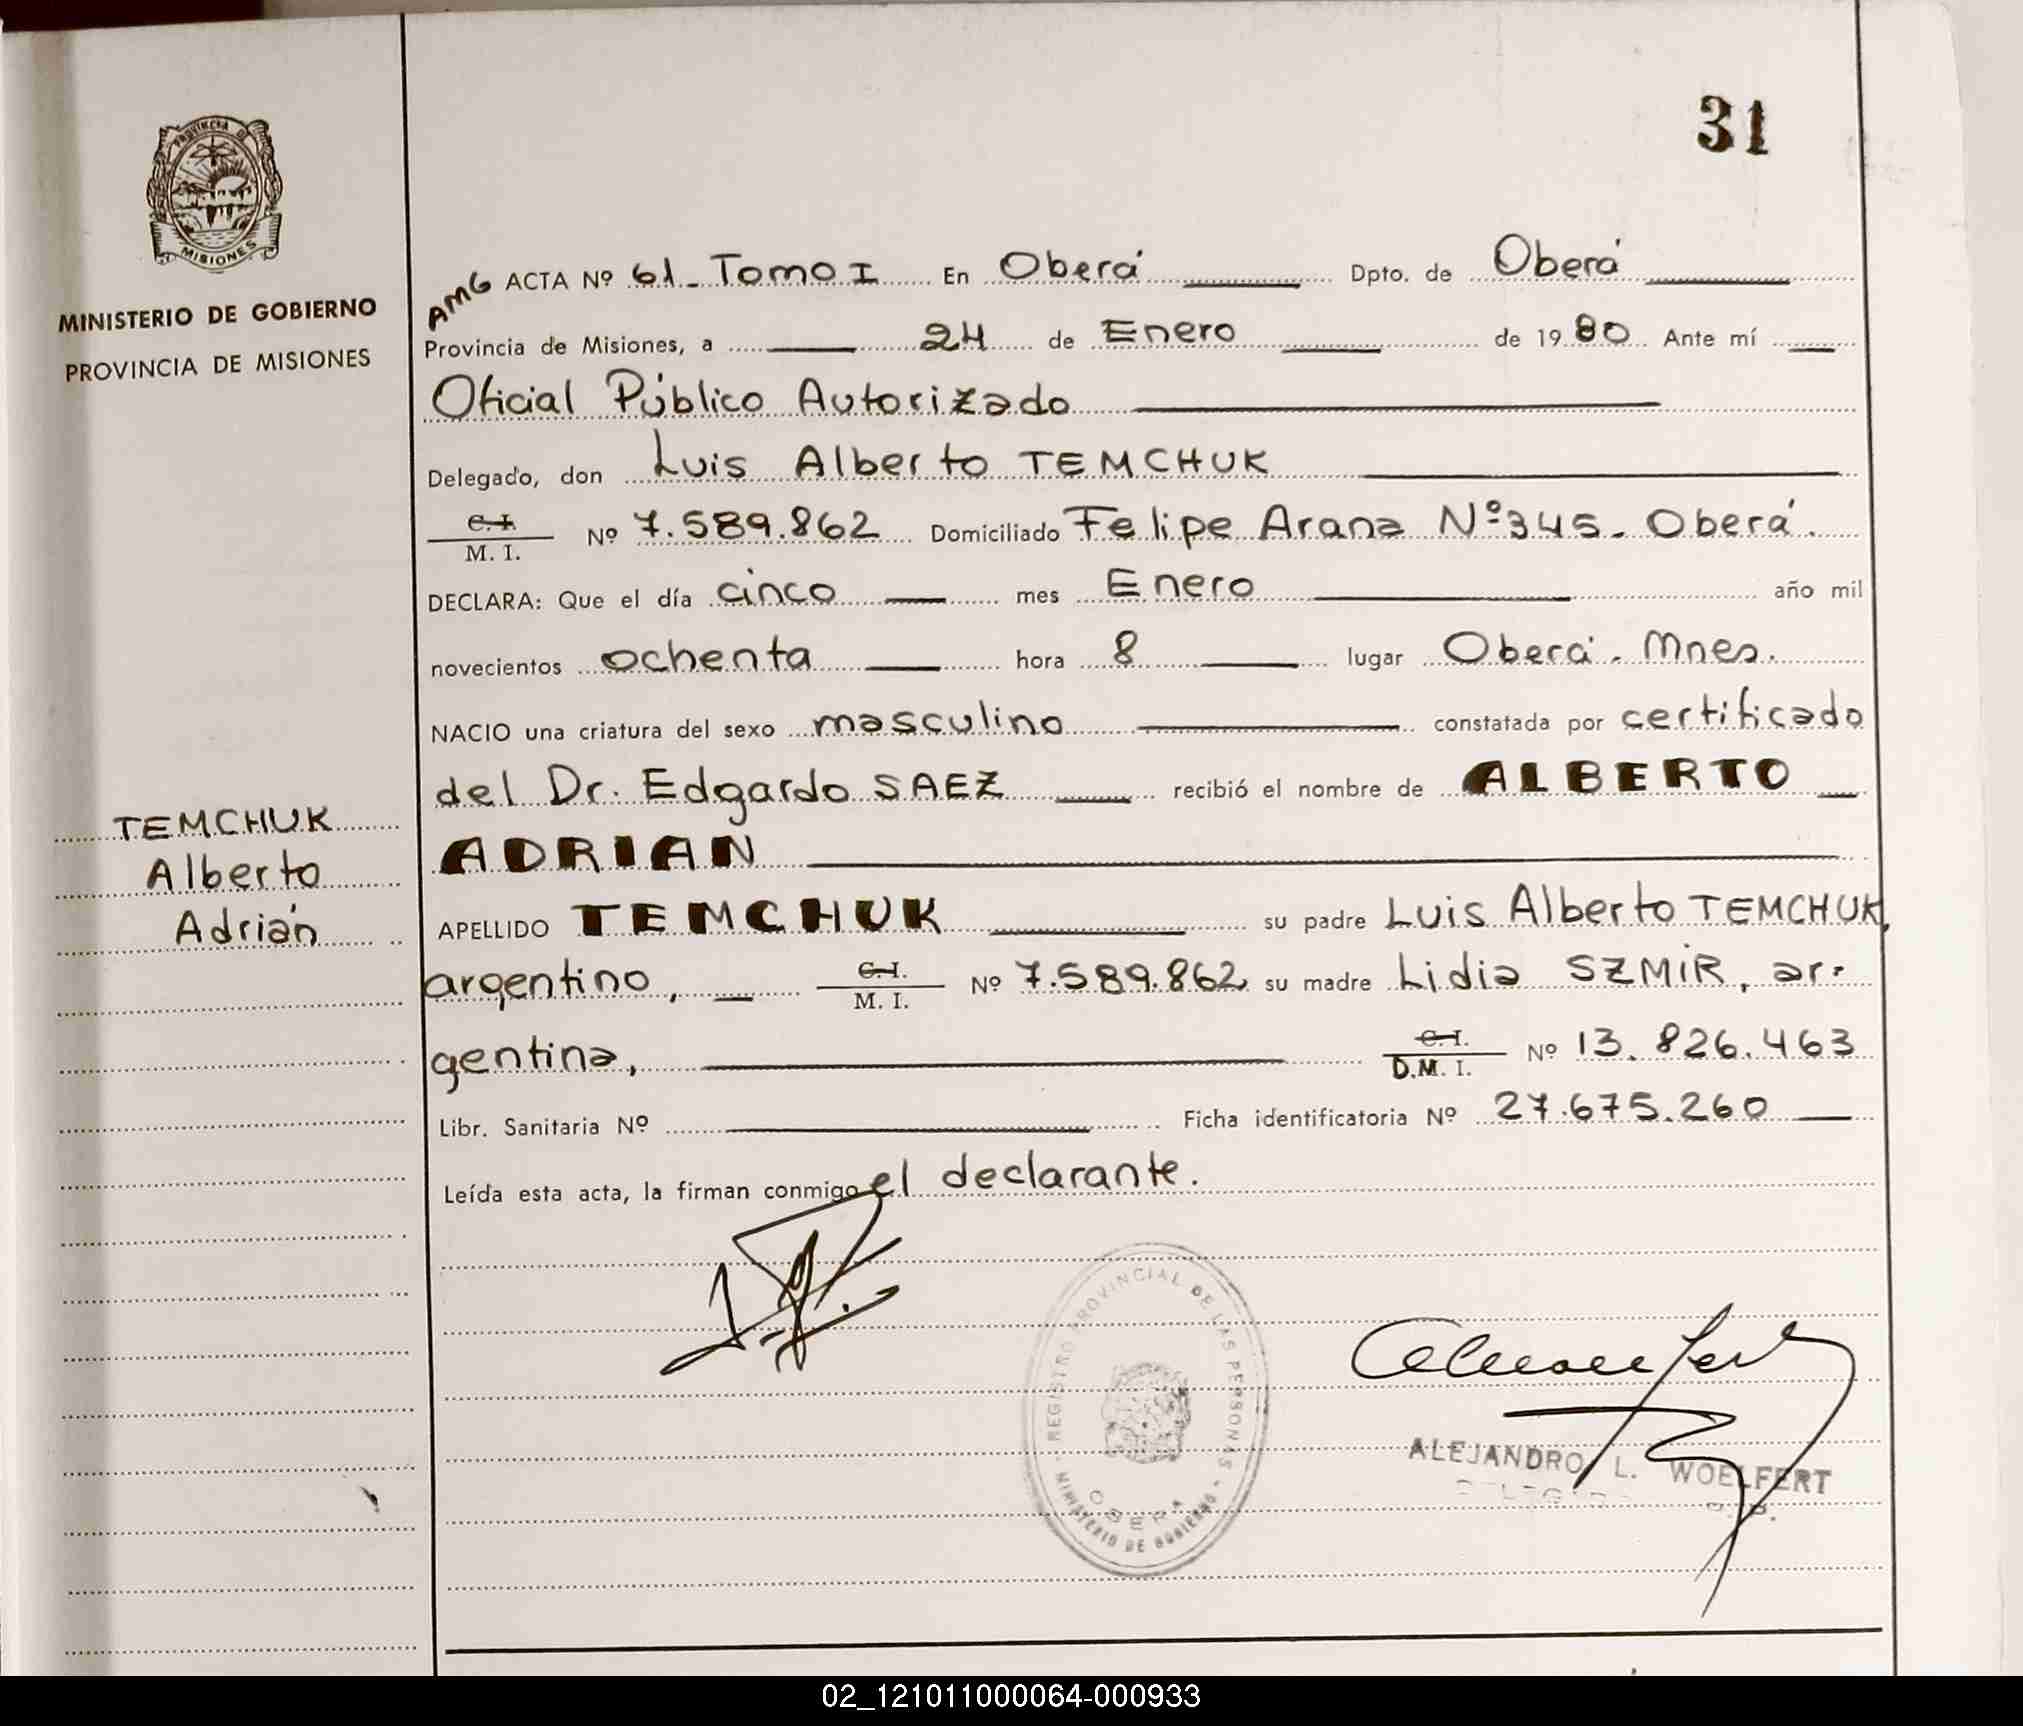 31
PROVINCIA DE
MISIONES
MINISTERIO DE GOBIERNO
PROVINCIA DE MISIONES
AMG ACTA Nº 61 - Tomo I En Oberá Dpto. de Oberá
Provincia de Misiones, a 24 de Enero de 1980 Ante mí
Oficial Público Autorizado
Delegado, don Luis Alberto TEMCHUK
C. I. / M. I. Nº 7.589.862 Domiciliado Felipe Arana Nº 345 - Oberá.
DECLARA: Que el día cinco mes Enero año mil
novecientos ochenta hora 8 lugar Oberá - Mnes.
NACIO una criatura del sexo masculino constatada por certificado
del Dr. Edgardo SAEZ recibió el nombre de ALBERTO
ADRIAN
APELLIDO TEMCHUK su padre Luis Alberto TEMCHUK,
argentino, C. I. / M. I. Nº 7.589.862 su madre Lidia SZMIR, ar-
gentina, C. I. / D.M. I. Nº 13.826.463
Libr. Sanitaria Nº Ficha identificatoria Nº 27.675.260
Leída esta acta, la firman conmigo el declarante.
TEMCHUK
Alberto
Adrián
REGISTRO PROVINCIAL DE LAS PERSONAS - MINISTERIO DE GOBIERNO -
OBERA
ALEJANDRO L. WOELFERT
02_121011000064-000933